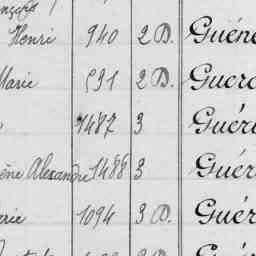 Henri 940 2 D. Guéne
Marie 591 2 D. Guero
1487 3 Guéri
ène Alexandre 1488 3 Guér
erie 1094 3 D. Guér